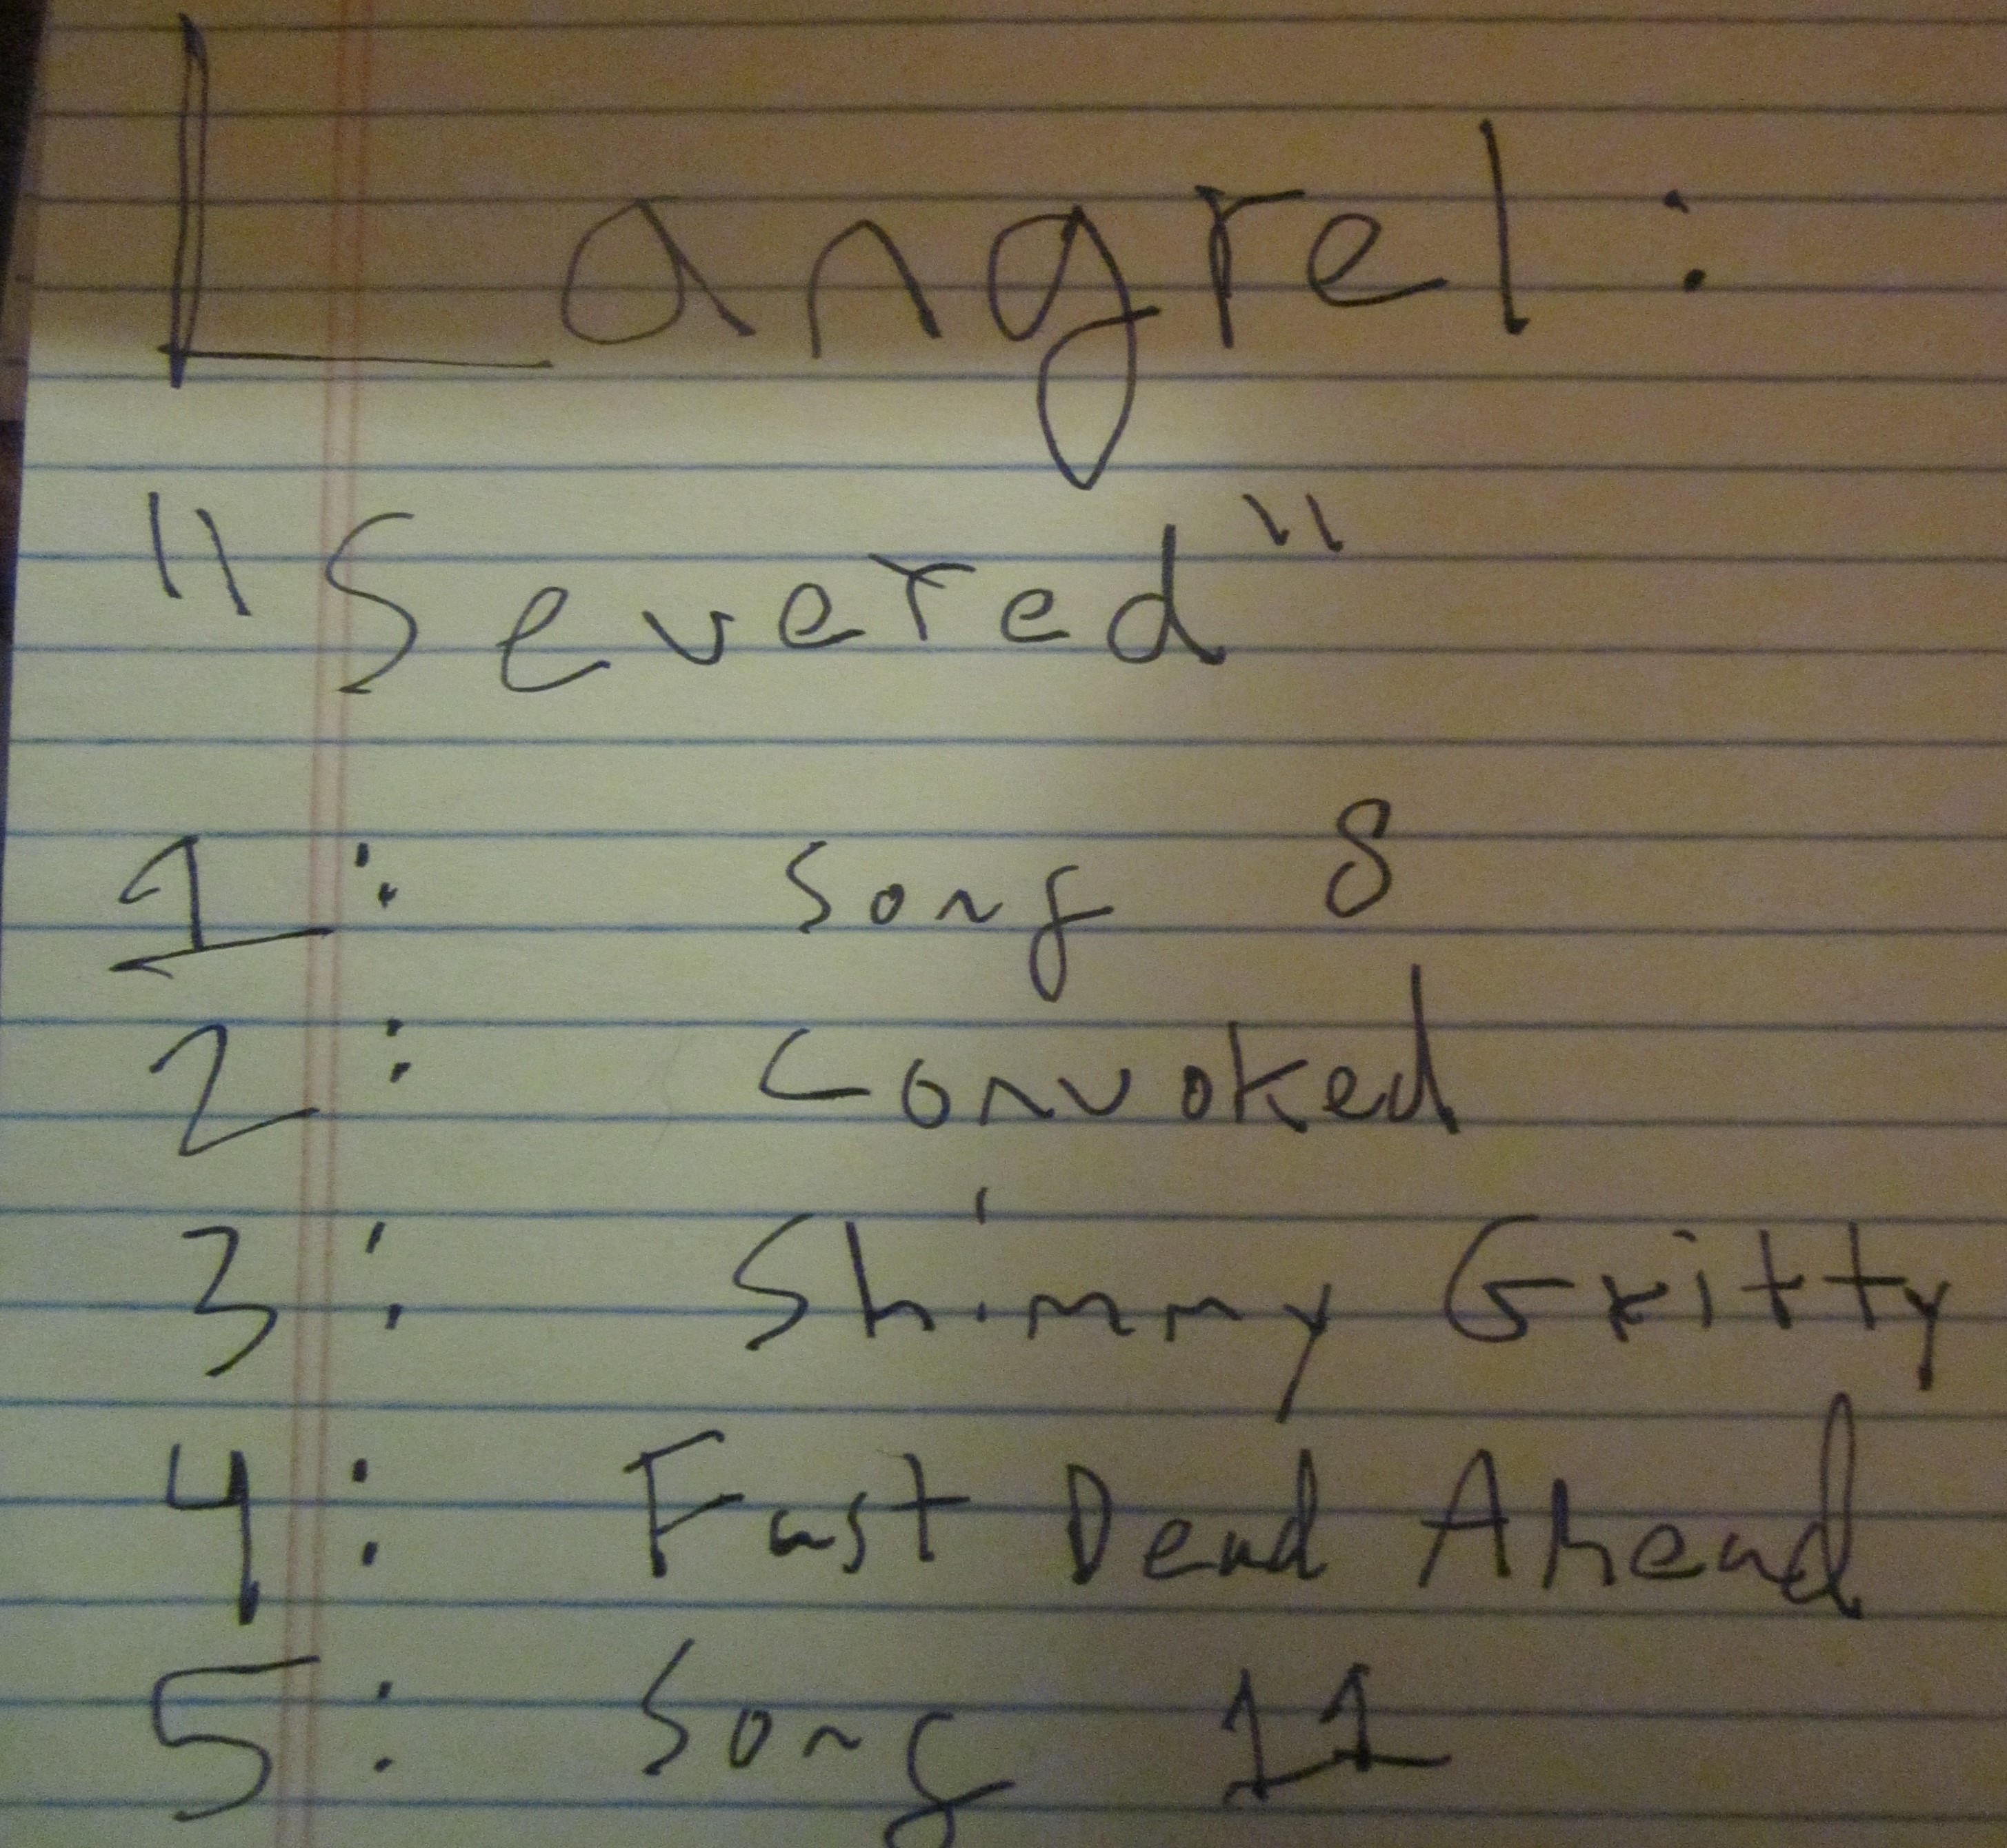 Langrel:
"Severed"
1: Song 8
2: Convoked
3: Shimmy Gritty
4: Fast Dead Ahead
5: Song 11